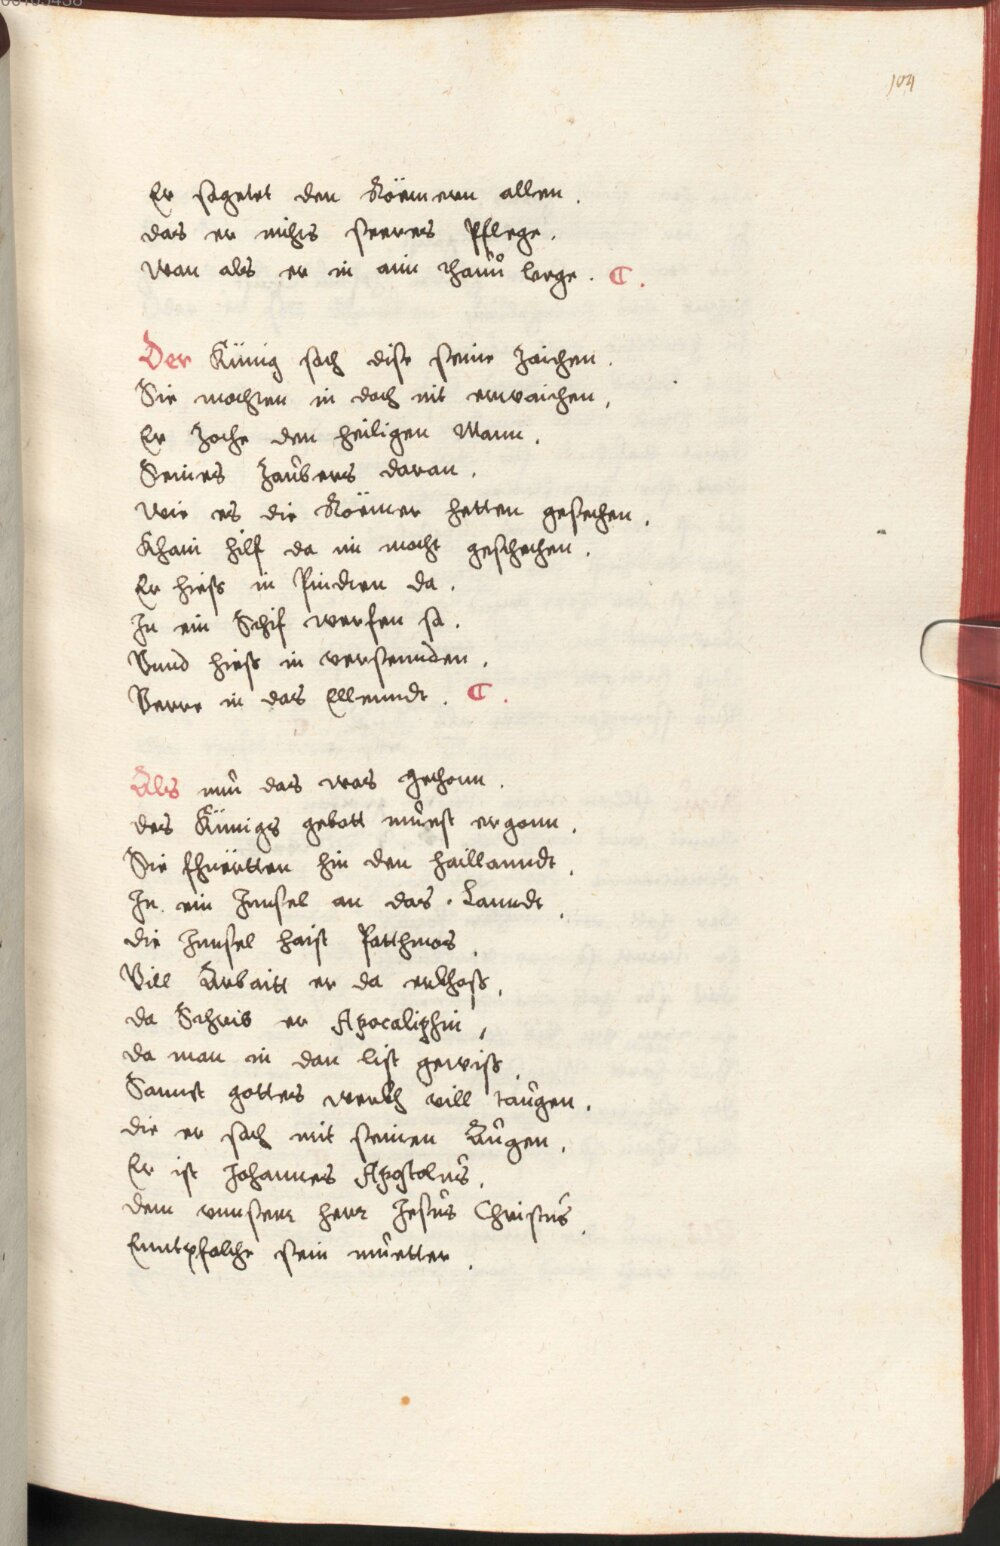 104
Er sagetet den Röemern allen.
das er nichts seeres Pflege.
wan als er in ain thauů lege. C.
Der Künig sach dise seine zaichen.
Sie mochten in doch nit erwaichen,
Er Zoche den heiligen Mann.
Seines Zaubers daran.
wie es die Röemer hetten gesechen.
Khain hilf da im mocht geschechen.
Er hiess in Pindten da.
In ein Schif werfen sa.
Vnnd hiess in versennden.
Verre in das Ellenndt. C.
Als nun das was gethonn.
des Künigs gebott muest ergonn.
Sie fhuërtten hin den haillanndt.
In ein Innsel an das Lanndt.
die Innsel haist Patthmos.
Vill Arbaitt er da erkhoss,
da Schrib er Apocaliphin,
da man in dan list gewiss.
Sannct gottes werkh vill taugen.
die er sach mit seinen Augen.
Er ist Johannes Apostolus.
dem vnnserr herr Jesus Christus.
Enntpfalche sein muetter.